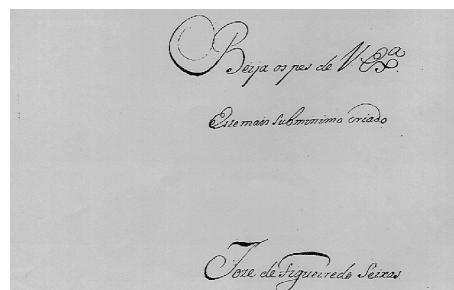 Beija os pes de V. Exª.
Este mais submınimo criado
Joze de Figueiredo Seixas